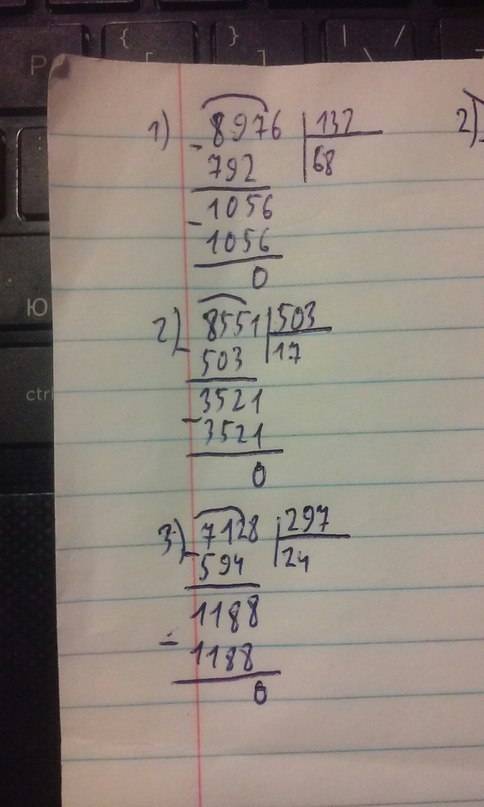 1) 8976 | 132
- 792 68
1056
- 1056
0
2) 8551 | 503
- 503 17
3521
- 3521
0
3) 7128 | 297
- 594 24
1188
- 1188
0
2)
Ю
ctrl